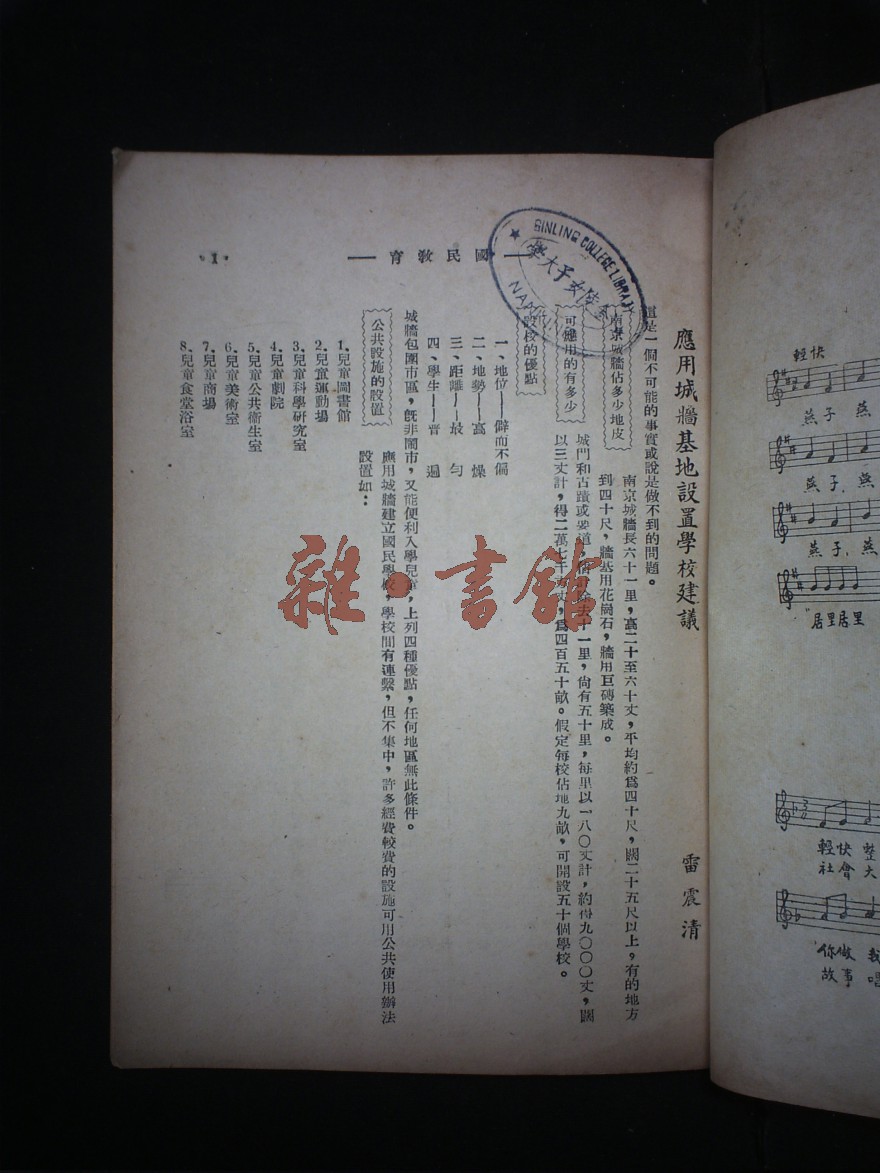 國民教育
1
應用城牆基地設置學校建議
雷震清
這是一個不可能的事實或說是做不到的問題。
南京城牆佔多少地皮
南京城牆長六十一里,高二十至六十丈,平均約爲四十尺,闊二十五尺以上,有的地方
到四十尺,牆基用花崗石,牆用巨磚築成。
可應用的有多少
城門和古蹟或要道
除去十一里,尙有五十里,每里以一八〇丈計,約得九〇〇〇丈,闊
以三丈計,得二萬七千方丈,爲四百五十畝。假定每校佔地九畝,可開設五十個學校。
設校的優點
一、地位——僻而不偏
二、地勢——高燥
三、距離——最勻
四、學生——普遍
城牆包圍市區,旣非鬧市,又能便利入學兒童,上列四種優點,任何地區無此條件。
公共設施的設置
應用城牆建立國民學校,學校間有連繫,但不集中,許多經費較費的設施可用公共使用辦法
設置如:
1.兒童圖書館
2.兒童運動場
3.兒童科學研究室
4.兒童劇院
5.兒童公共衛生室
6.兒童美術室
7.兒童商場
8.兒童食堂浴室
GINLING COLLEGE LIBRARY
金陵女子大學
NAN
雜·書館
輕快
燕子 燕
燕子、燕
燕子,燕
居里居里
輕快 整
社會 大
你做 我
故事 唱